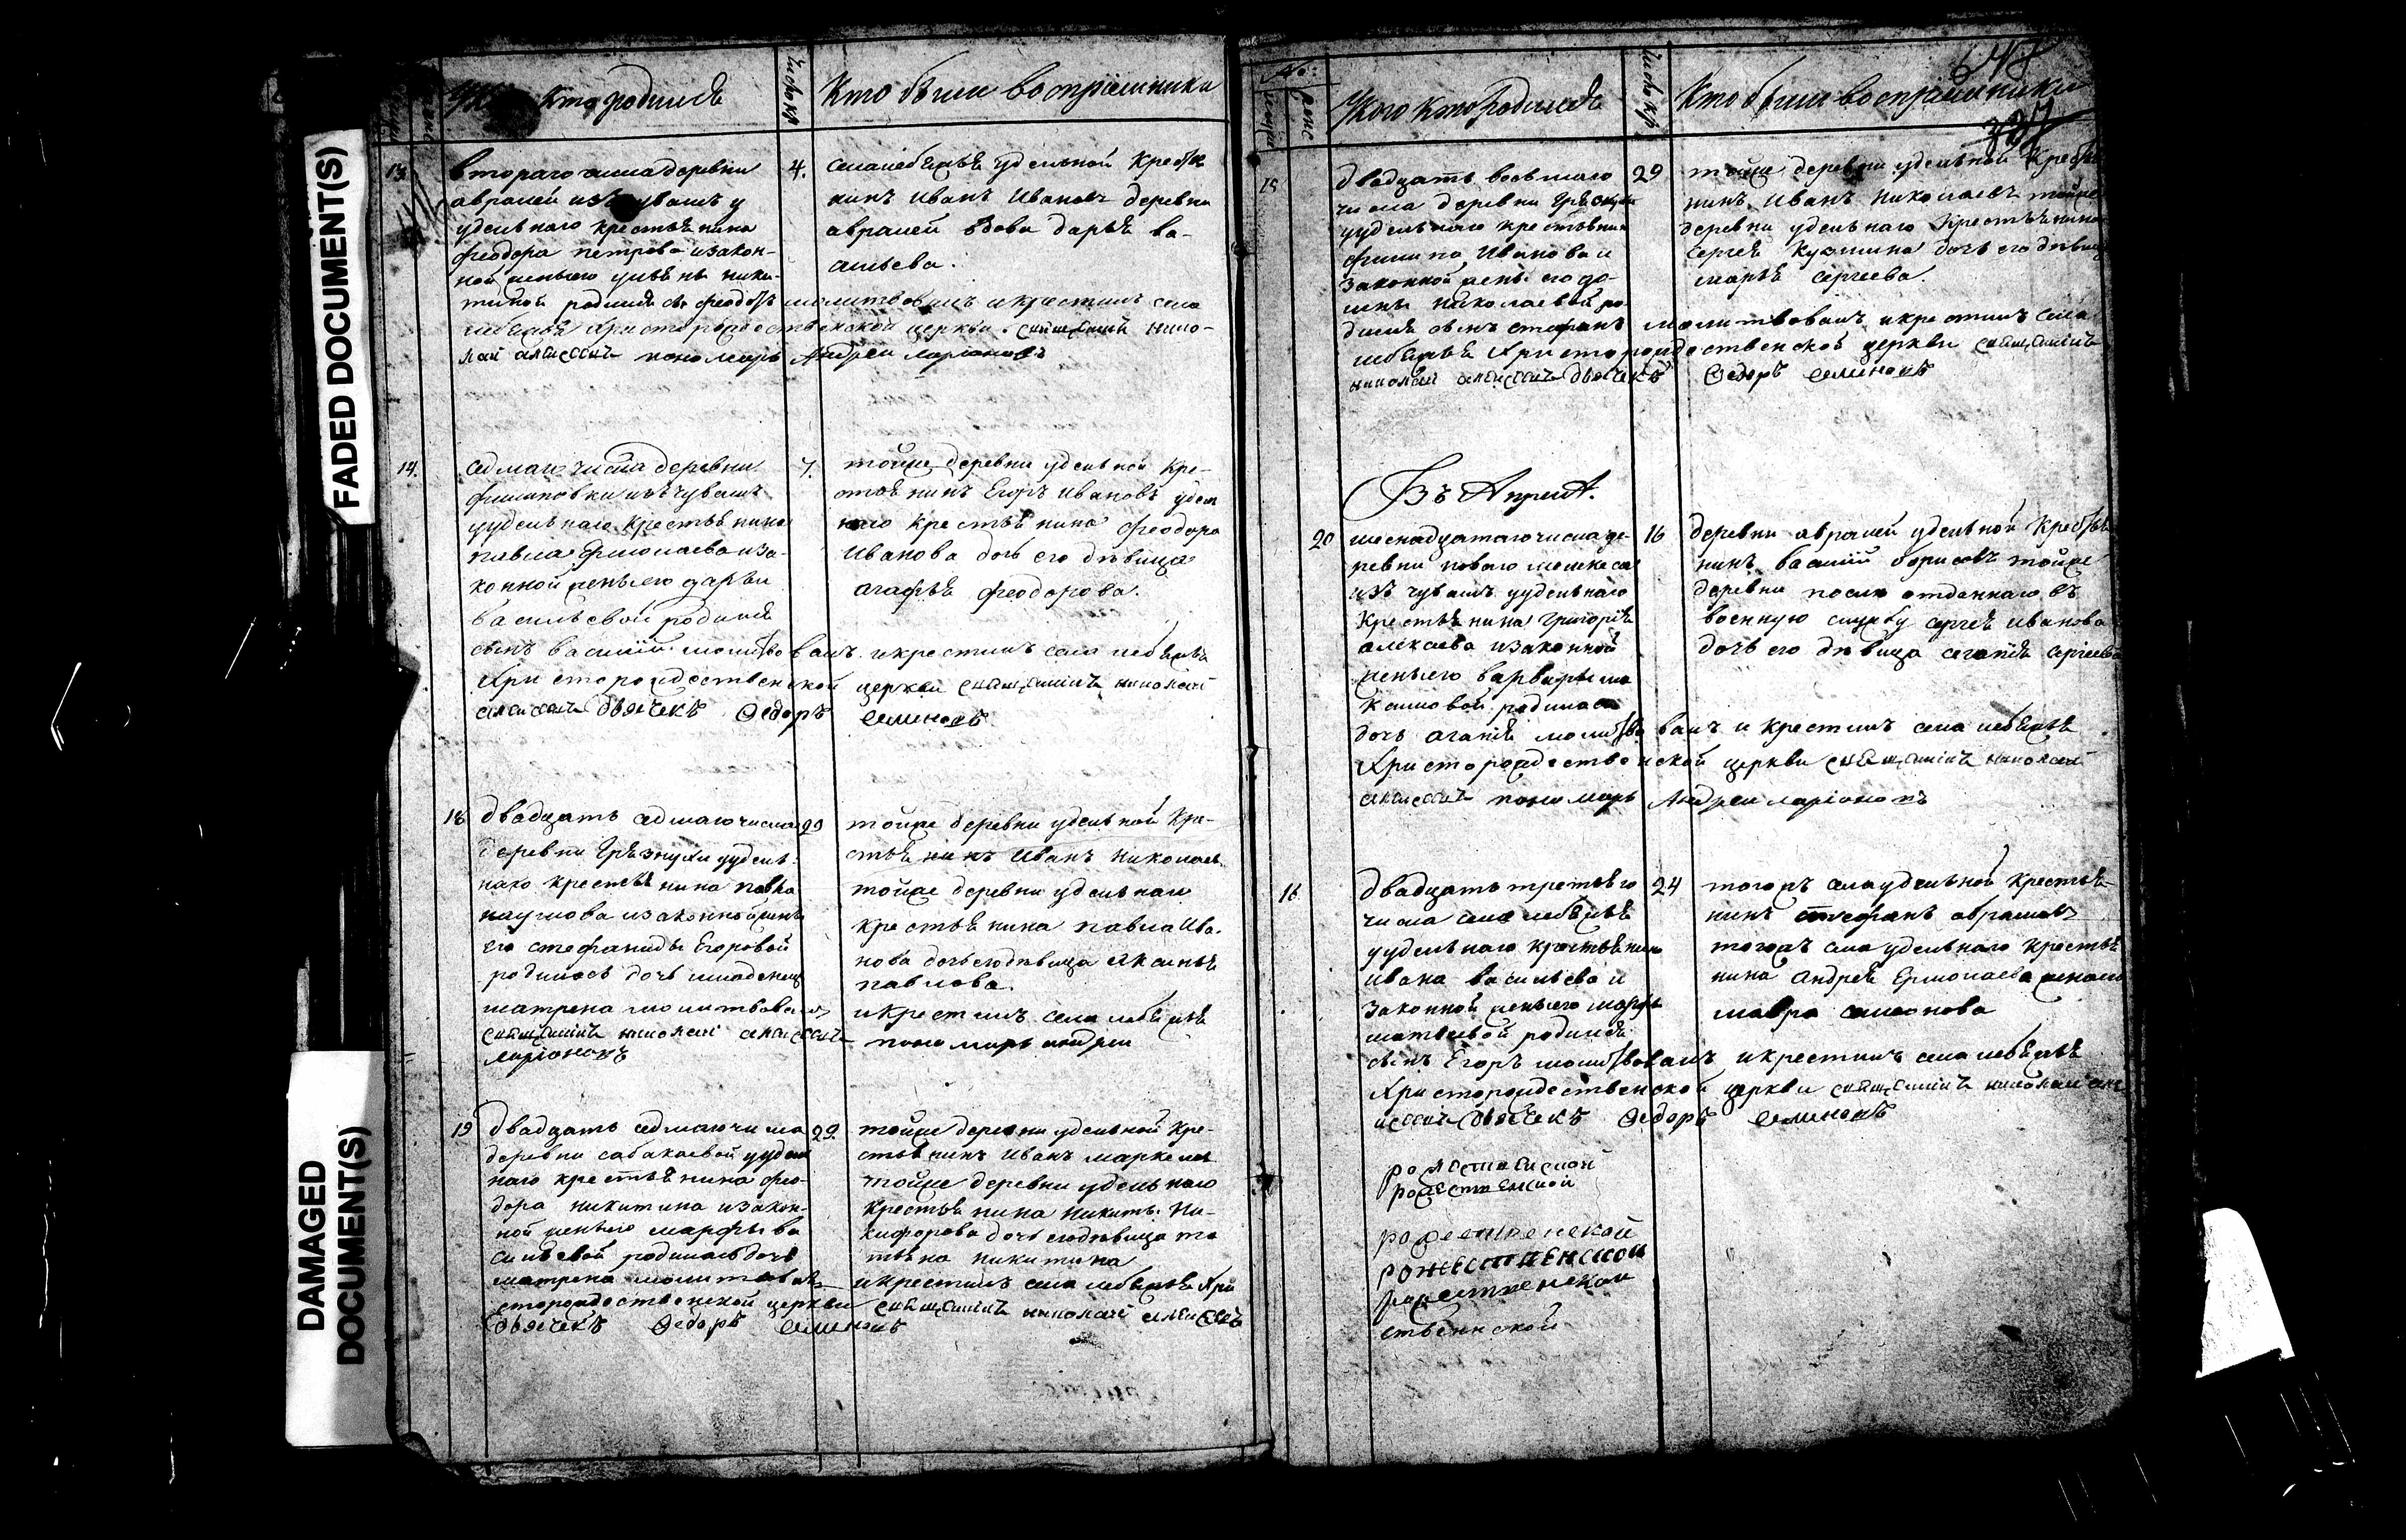 FADED DOCUMENT(S)
DAMAGED DOCUMENT(S)
кто родился
Число кр
Кто были воспріемники
13
втораго числа деревни
авралей изъ чувашъ у
удельнаго крестьянина
феодора петрова и закон-
ной жены его ульяны ники-
тиной родился сынъ феодоръ
4.
села лебежья удельной крестья
нинъ Иванъ Ивановъ деревни
авралей вдова дарья ва-
сильева.
молитвовалъ и крестилъ села
лебежья Христорождественской церкви священникъ нико-
лай алексеевъ пономарь Андреи ларіоновъ
14.
седмаго числа деревни
филиповки изъ чувашъ
у удельнаго крестьянина
павла ермолаева и за-
конной жены его дарьи
васильевой родился
7.
тойже деревни удельной кре-
стьянинъ Егоръ Ивановъ удель
наго крестьянина феодора
Иванова дочь его девица
агафья феодорова.
сынъ василій молитвовалъ и крестилъ села лебежья
Христорождественской церкви священникъ николай
алексеевъ дьячекъ Ѳедоръ Семеновъ
18
двадцать седмаго числа
деревни Грязнухи у удель-
наго крестьянина павла
наумова и законной жены
его стефаниды Егоровой
родилась дочь младенец
матрена молитвовалъ
29
тойже деревни удельной кре-
стьянинъ Иванъ Николаев
тойже деревни удельнаго
крестьянина павла Ива-
нова дочь его девица Аксинья
павлова.
и крестилъ села лебежья
священникъ николай алексеевъ пономарь андреи
ларіоновъ
19
двадцать седмаго числа
деревни сабакаевой у удель
наго крестьянина фео-
дора никитина и закон-
ной жены его марфы ва
сильевой родилась дочь
матрена молитвовалъ
29.
тойже деревни удельной кре-
стьянинъ Иванъ маркелов
тойже деревни удельнаго
крестьянина никиты Ни-
кифорова дочь его девица та
тьяна никитина
и крестилъ села лебежья Хри
сторождественской церкви священникъ николай алексеевъ
дьячекъ Ѳедоръ Семеновъ
№:
У кого кто родился
Число кр
Кто были воспріемники
15
двадцать восьмаго
числа деревни Грязнухи
у удельнаго крестьянина
филипа Иванова и
законной жены его до-
мны николаевой ро-
дился сынъ стефанъ
29
тойже деревни удельной крестья
нинъ Иванъ николаевъ тойже
деревни удельнаго крестьянина
Сергея Кузмина дочь его девица
марья сергеева.
молитвовалъ и крестилъ села
лебежья Христорождественской церкви священникъ
николай алексеевъ дьячекъ Ѳедоръ Семеновъ
Въ Апреле.
20
шеснадцатаго числа де-
ревни новаго мелекеса
изъ чувашъ у удельнаго
крестьянина григорія
алексеева и законной
жены его варвары ма
ксимовой родилась
16
деревни авралей удельной крестья
нинъ василій борисовъ тойже
деревни после отданнаго въ
военную службу сергея Иванова
дочь его девица агапія сергеева
дочь агапія молитвовалъ и крестилъ села лебежья
Христорождественской церкви священникъ николай
алексеевъ пономарь Андреи ларіоновъ
16
двадцать третьяго
числа села лебежья
у удельнаго крестьянина
ивана васильева и
законной жены его марфы
матвеевой родился
24
тогожъ села удельной крестья-
нинъ стефанъ абрамовъ
тогожъ села удельнаго крестья
нина андрея Ермолаева жена
мавра семенова
сынъ Егоръ молитвовалъ и крестилъ села лебежья
Христорождественской церкви священникъ николай але
ксеевъ дьячекъ Ѳедоръ Семеновъ
рожественской
рожественской
рожественской
рожественской
ственской